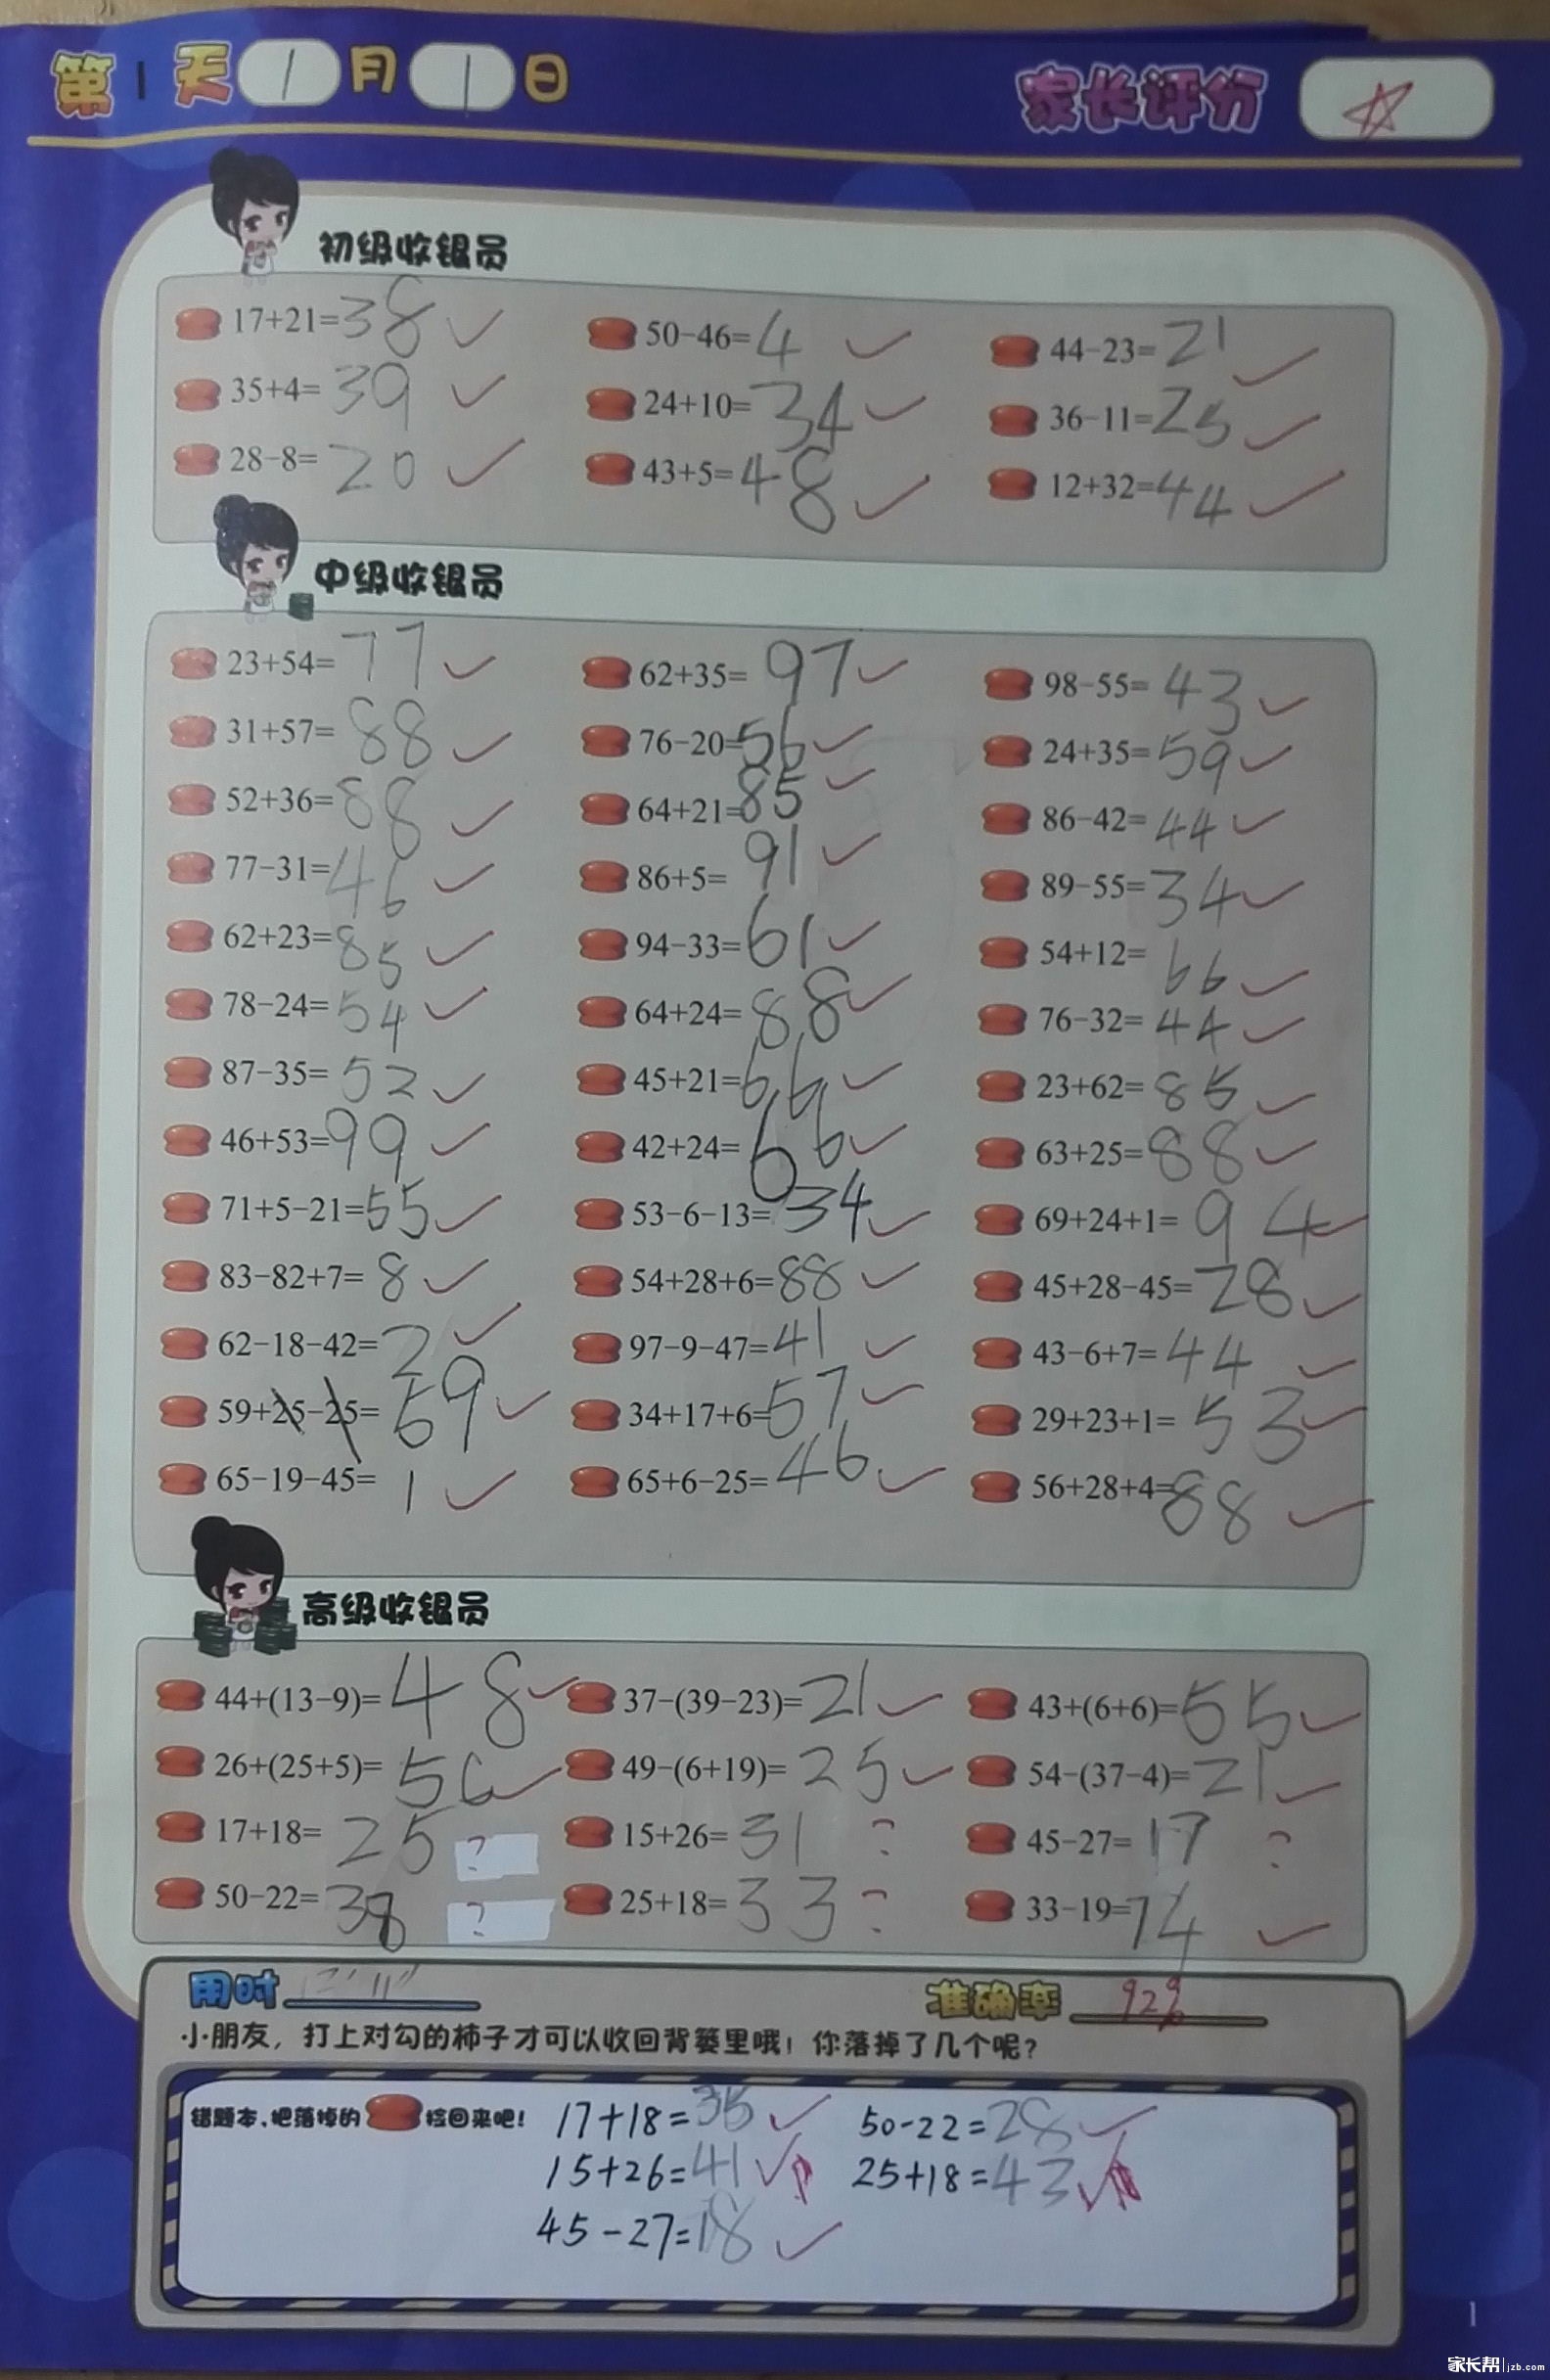 第1天 1月1日 家长评分
初级收银员
17+21=38 50-46=4 44-23=21
35+4=39 24+10=34 36-11=25
28-8=20 43+5=48 12+32=44
中级收银员
23+54=77 62+35=97 98-55=43
31+57=88 76-20=56 24+35=59
52+36=88 64+21=85 86-42=44
77-31=46 86+5=91 89-55=34
62+23=85 94-33=61 54+12=66
78-24=54 64+24=88 76-32=44
87-35=52 45+21=66 23+62=85
46+53=99 42+24=66 63+25=88
71+5-21=55 53-6-13=34 69+24+1=94
83-82+7=8 54+28+6=88 45+28-45=28
62-18-42=2 97-9-47=41 43-6+7=44
59+25-25=59 34+17+6=57 29+23+1=53
65-19-45=1 65+6-25=46 56+28+4=88
高级收银员
44+(13-9)=48 37-(39-23)=21 43+(6+6)=55
26+(25+5)=56 49-(6+19)=25 54-(37-4)=21
17+18=25 ? 15+26=31 ? 45-27=17 ?
50-22=38 ? 25+18=33 ? 33-19=14
用时 准确率 92%
小朋友，打上对勾的柿子才可以收回背篓里哦！你落掉了几个呢？
错题本，把落掉的 捡回来吧！ 17+18=35 50-22=28
15+26=41 25+18=43
45-27=18
1
家长帮 jzb.com